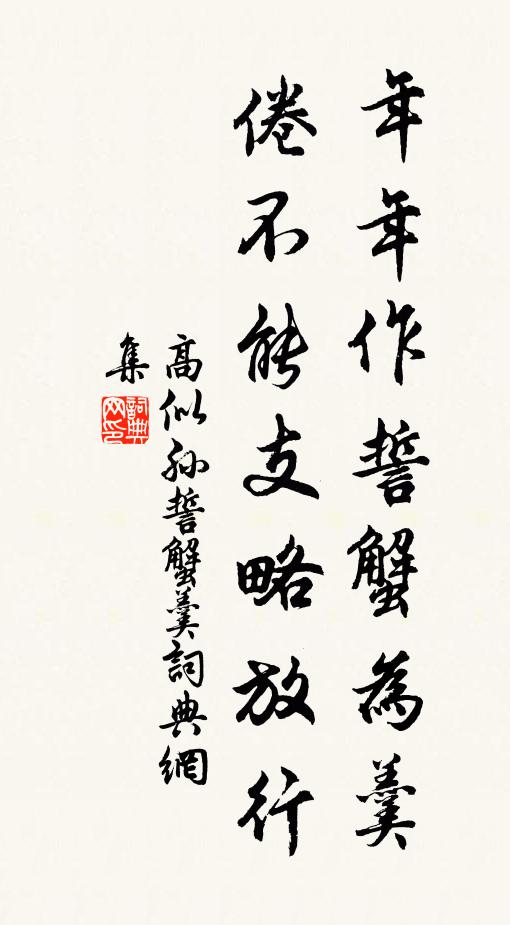 年年作誓蟹為羹
倦不能支略放行
高似孫誓蟹羹詞典網
集
詞典網印